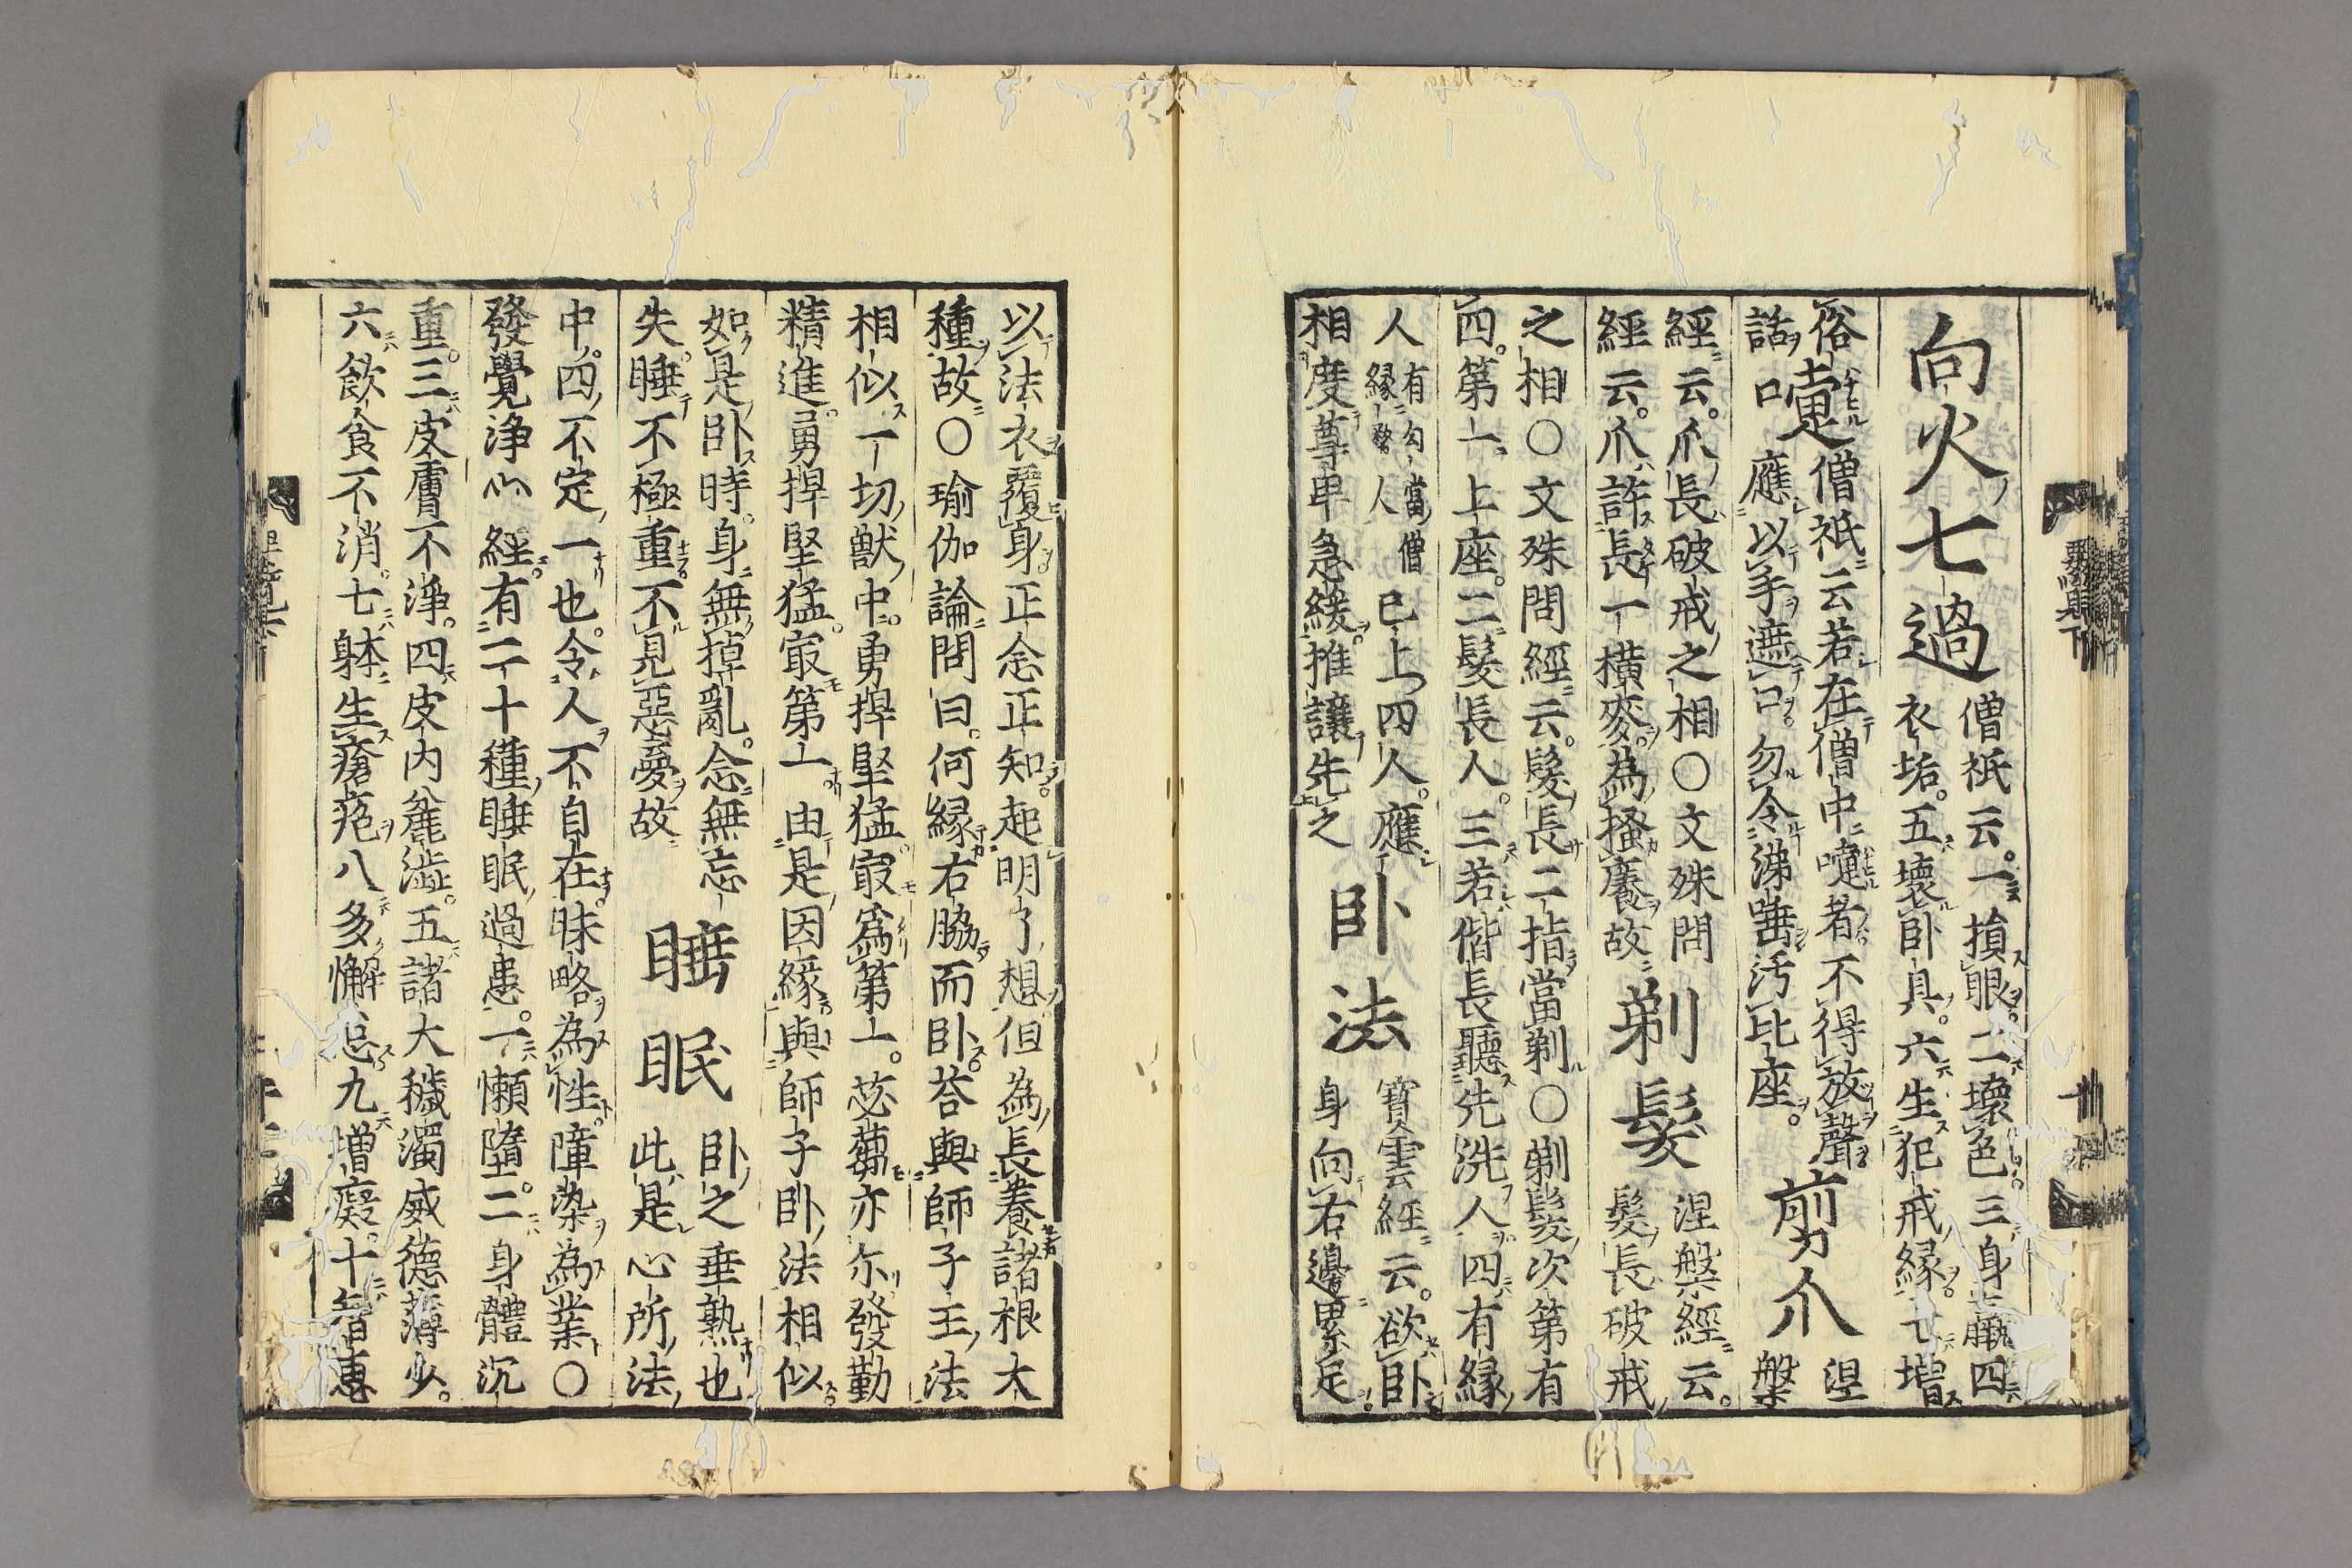 向火七過
僧祇云。一損眼。二壞色。三身羸。四
衣垢。五壞卧具。六生犯戒緣。七增
俗
話口
嚏
僧祇云若在僧中嚏者不得放聲
應以手遮口。勿令涕唾污比座。
剪爪
涅
槃
經云。爪長破戒之相〇文殊問
經云。爪許長一橫麥。為搔癢故
剃髮
涅槃經云。
髮長破戒
之相〇文殊問經云。髮長二指當剃〇剃髮次第有
四。第一上座。二髮長人。三若偕長聽先洗人四有緣
人有勾當僧
緣務人
已上四人。應
相度尊卑急緩。推讓先之
卧法
寶雲經云。欲卧
身向右邊累足
要覽下
以法衣覆身正念正知。起明了想但為長養諸根大
種故〇瑜伽論問曰。何緣右脇而卧。荅與師子王法
相似一切獸中。勇捍堅猛最為第一。苾蒭亦尔發勤
精進。勇捍堅猛。最第一。由是因緣與師子卧法相似。
如是卧時。身無掉亂。念無忘
失。睡不極重不見惡夢故
睡眠
卧之垂熟也
此是心所法
中。四不定一也。令人不自在昧略為性。障染為業〇
發覺淨心經有二十種睡眠過患。一懶墮。二身體沉
重。三皮膚不淨。四皮內麁澁。五諸大穢濁威德薄少。
六飲食不消。七躰生瘡疱八多懈怠九增癡。十智惠